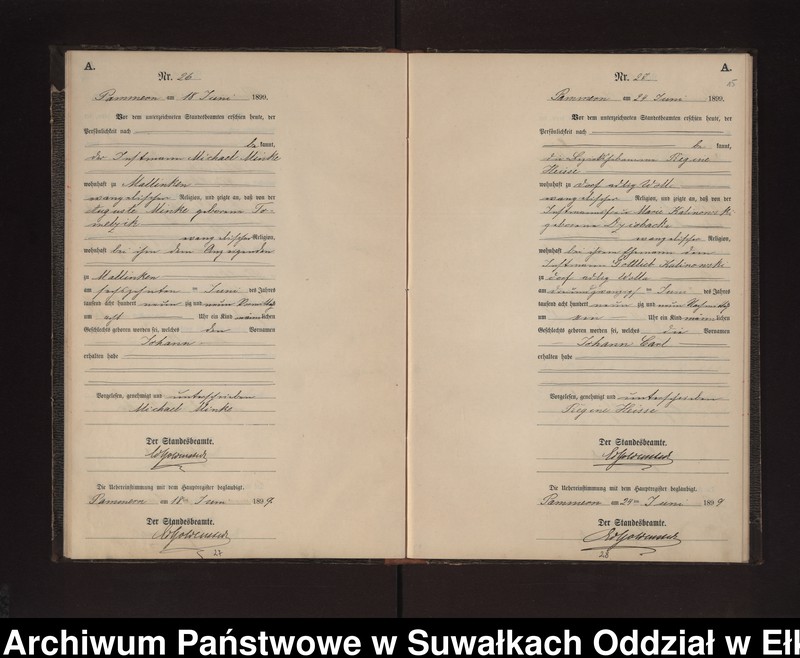 A.
Nr. 26
Pammern am 18 Juni 1899.
Vor dem unterzeichneten Standesbeamten erschien heute, der
Persönlichkeit nach
be kannt,
der Instmann Michael Minke
wohnhaft zu Mallinken
evangelischer Religion, und zeigte an, daß von der
Auguste Minke geborene
evangelischer Religion,
wohnhaft bei ihm dem Anzeigenden
zu Mallinken
am sechszehnten ten Juni des Jahres
tausend acht hundert neun zig und neun Vormittags
um acht Uhr ein Kind männlichen
Geschlechts geboren worden sei, welches den Vornamen
Johann
erhalten habe
Vorgelesen, genehmigt und unterschrieben
Michael Minke
Der Standesbeamte.
Die Uebereinstimmung mit dem Hauptregister beglaubigt.
am 18ten Juni 1899.
Der Standesbeamte.
27
A.
Nr.
Pammern am Juni 1899.
Vor dem unterzeichneten Standesbeamten erschien heute, der
Persönlichkeit nach
be kannt,
die Regine
Heisse
wohnhaft zu Dorf adlig
evangelischer Religion, und zeigte an, daß von der
Instmannsfrau Marie
geborene
evangelischer Religion,
wohnhaft bei ihrem Ehemann dem
Instmann Gottlieb Kalinowski
zu Dorf adlig
am ten Juni des Jahres
tausend acht hundert neun zig und neun Nachmittags
um Uhr ein Kind männlichen
Geschlechts geboren worden sei, welches die Vornamen
Johann Carl
erhalten habe
Vorgelesen, genehmigt und unterschrieben
Regine Heisse
Der Standesbeamte.
Die Uebereinstimmung mit dem Hauptregister beglaubigt.
Pammern am Juni 1899
Der Standesbeamte.
28
Archiwum Państwowe w Suwałkach Oddział w Ełk